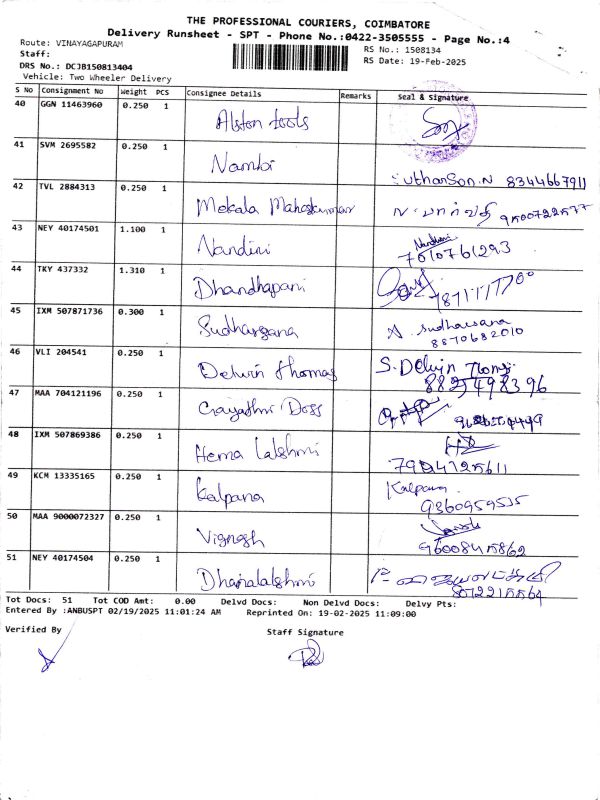 THE PROFESSIONAL COURIERS, COIMBATORE
Delivery Runsheet - SPT - Phone No.:0422-3505555 - Page No.:4
Route: VINAYAGAPURAM
RS No.: 1508134
Staff:
RS Date: 19-Feb-2025
DRS No.: DCJB150813404
Vehicle: Two Wheeler Delivery
S No Consignment No Weight PCS Consignee Details Remarks Seal & Signature
40 GGN 11463960 0.250 1 Alston tools
41 SVM 2695582 0.250 1 Nambi
Sutharson.N 8344667911
42 TVL 2884313 0.250 1 Mekala
43 NEY 40174501 1.100 1 Nandini
Nandini
7010761293
44 TKY 437332 1.310 1 Dhandhapani
45 IXM 507871736 0.300 1 Sudhargana
8870682010
46 VLI 204541 0.250 1 Delwin thomas
S. Delwin
47 MAA 704121196 0.250 1 Gayathri Doss
48 IXM 507869386 0.250 1 Hema lakshmi
49 KCM 13335165 0.250 1 Kalpana
Kalpana
9360959535
50 MAA 9000072327 0.250 1 Vignesh
51 NEY 40174504 0.250 1 Dhanalakshmi
Tot Docs: 51 Tot COD Amt: 0.00 Delvd Docs: Non Delvd Docs: Delvy Pts:
Entered By :ANBUSPT 02/19/2025 11:01:24 AM Reprinted On: 19-02-2025 11:09:00
Verified By Staff Signature